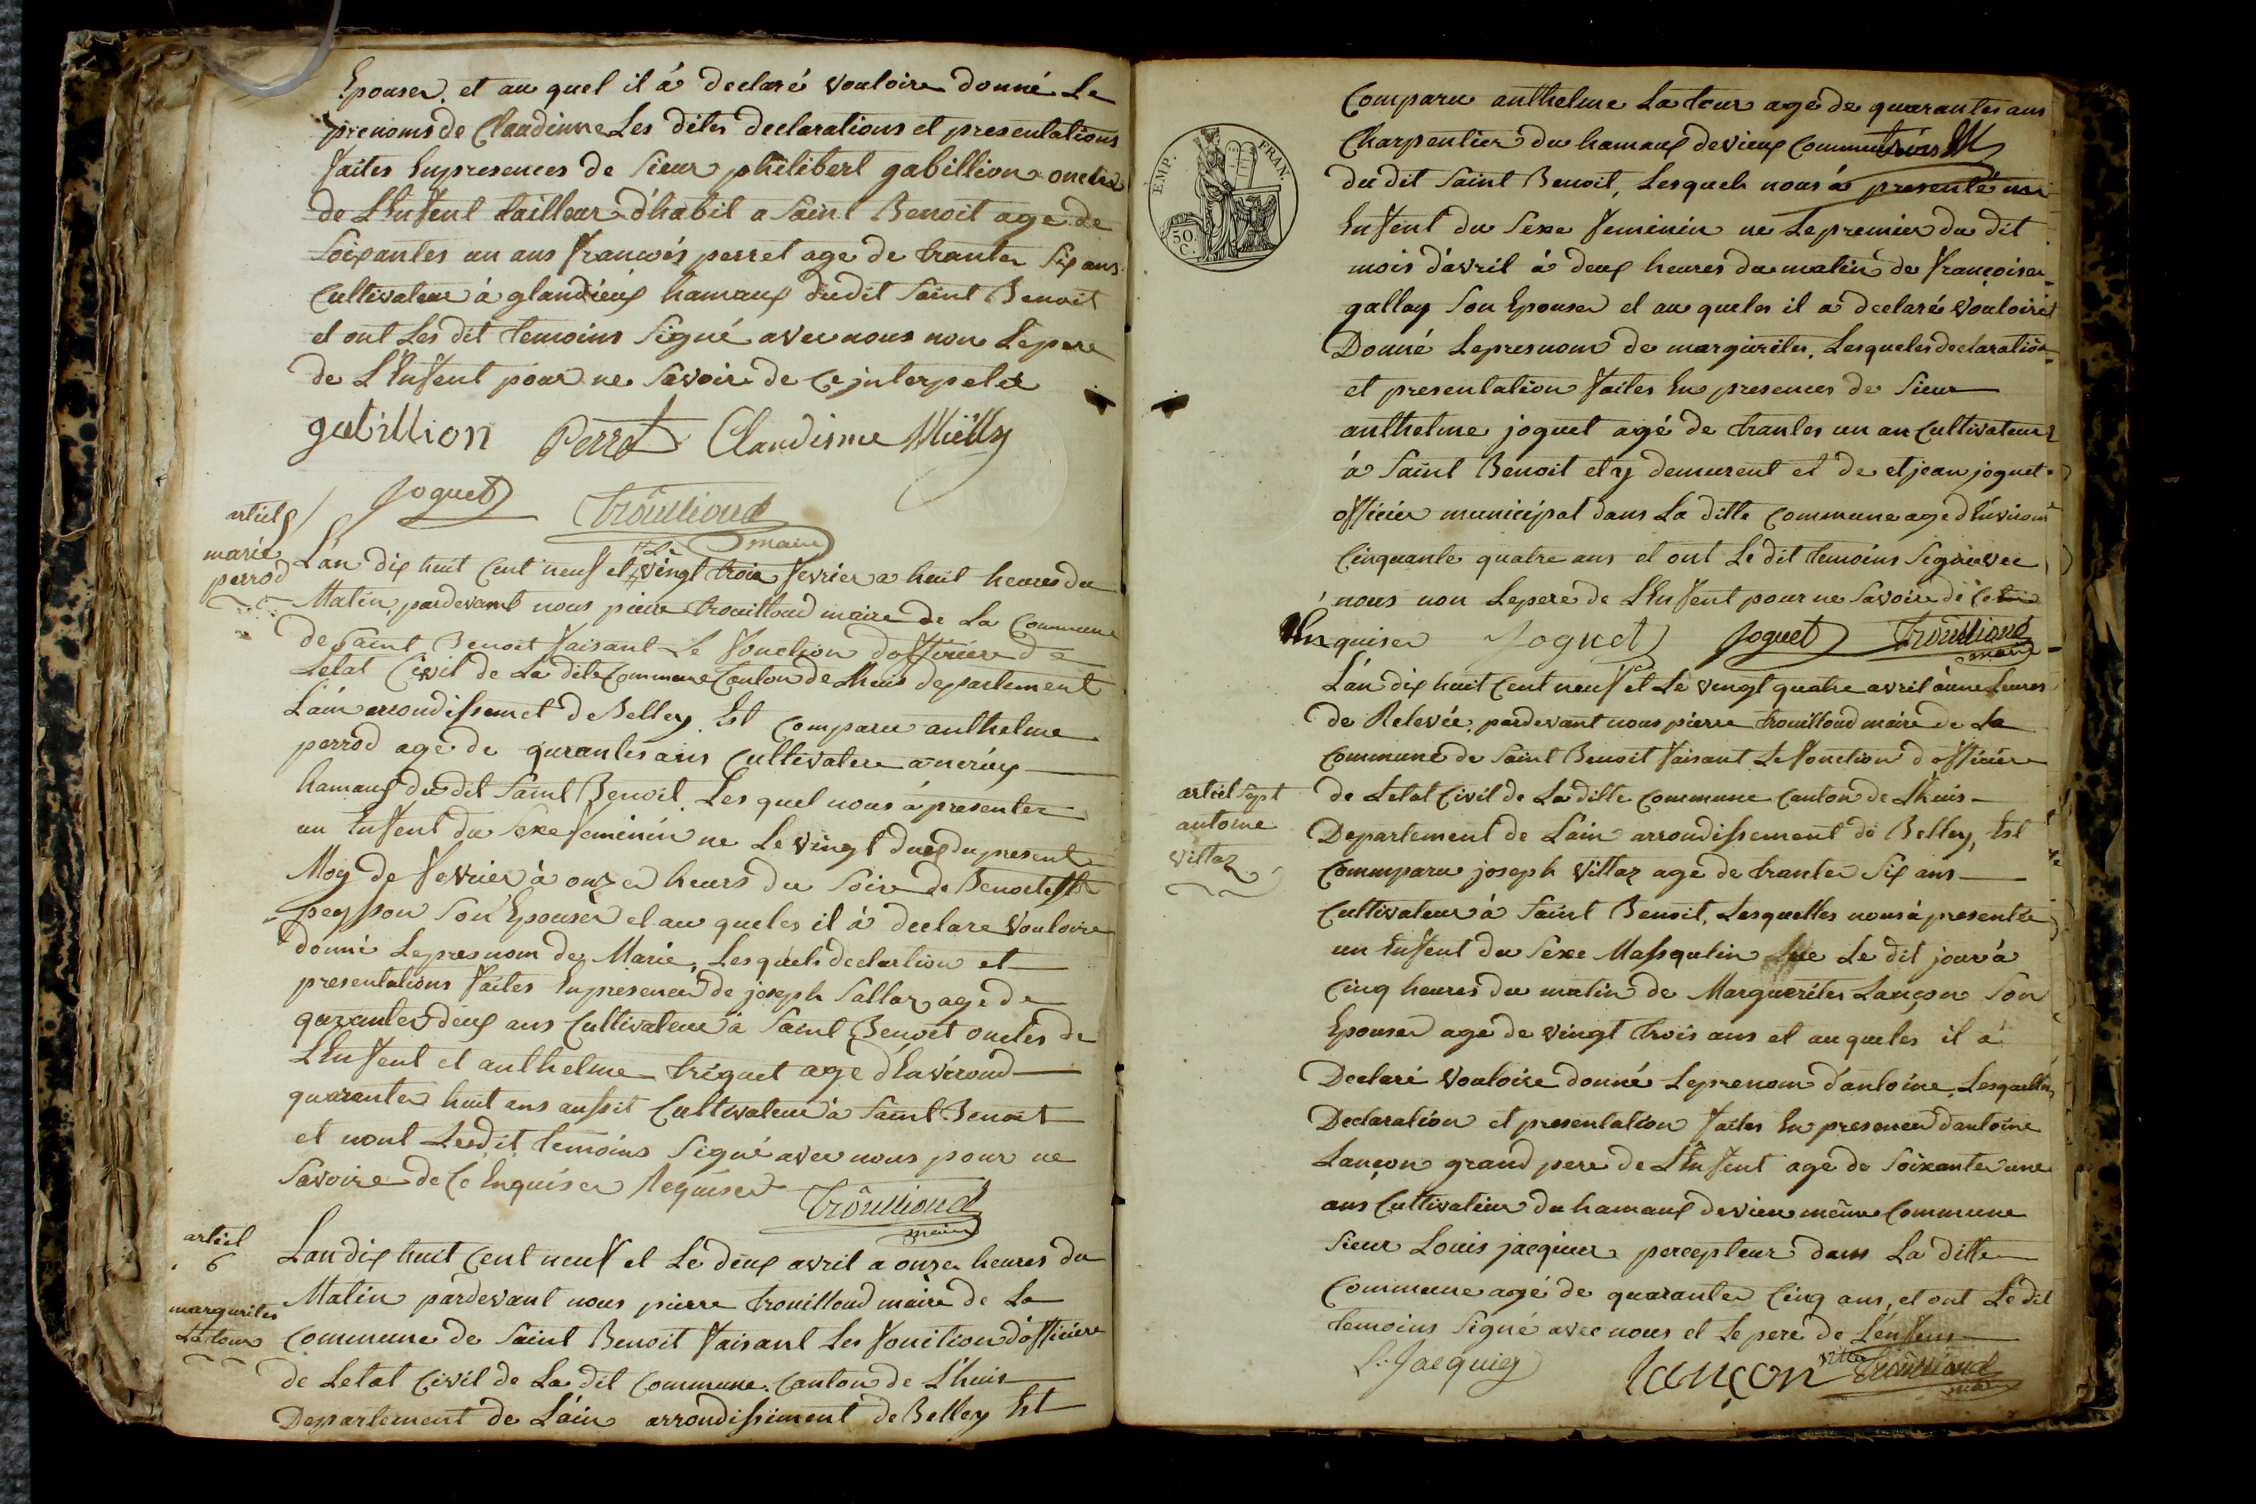 Epouser. et au quel il á declaré vouloire donné Le
prenoms de Claudinne Les dites declarations et presentations
faites Enpresences de Sieur philibert gabillion oncles
de L'Enfent tailleur d'habit a Saint Benoit age de
Soixantes un ans francois perret age de trantes Six ans
Cultivateur à glandieux hamaux dudit Saint Benoit
et ont Les dit temoins Signé avec nous non Lepere
de L'Enfent pour ne Savoir de Ce interpelé
gabillion Perret Claudinne Mietty
Joguet Trouilloud
maire
articl 5
marie
perrod
L'an dix huit Cent neuf et Le vingt trois fevrier a huit heures du
Matin, pardevant nous pierre trouilloud maire de La Commune
de Saint Benoit faisant Le fonction d'officiere de
Letat Civil de La dite Commune Canton de Lhuis departement
L'ain arrondissemet de Belley. Est Comparu anthelme
perrod age de qurantes ans Cultivateur a nerieux
hamaux dudit Saint Benoit. Les quel nous á presenter
un Enfent du Sexe feminin ne Le vingt deux du present
Moy de fevrier à onzes heurs du Soire de Benoite
peysson Son Epouser et au queles il á declare vouloire
donné Lepresnom de Marie, Les quels declartion et
presentations faites Enpresences de joseph Sallaz age de
quarantes deux ans Cultivateur à Saint Benoit oncles de
L'Enfent et anthelme triquet age d'Environd
quarantes huit ans aussit Cultivateur à Saint Benoit
et nont Lesdit temoins Signé avec nous pour ne
Savoire de Ce Enquiser Requiser Trouilloud
maire
articl
6
margurites
La tour
Lan dix huit Cent neuf et Le deux avril a onzes heures du
Matin pardevant nous pierre trouilloud maire de La
Commune de Saint Benoit faisant Les fonction d'officiere
de Letat Civil de La dit Commune. Canton de L'huis
Departement de L'ain arrondissiment de Belley Est
EMP. FRAN.
50. C.
Comparu anthelme La tour age de quarantes ans
Charpentier du hamaux de vieux Commune
du dit Saint Benoit, Lesquels nous á presenté un
Enfent du Sexe feminin ne Le premier du dit
mois d'avril à deux heures du matin de françoises
gallay Son Epouser et au queles il a declaré vouloire
Donné Lepresnom de margurites. Lesqueles declaration
et presentation faites En presences de Sieur
anthelme joguet agé de trantes un an Cultivateur
à Saint Benoit et y demurent et de et jean joguet
officier municipal dans La ditte Commune age d'Environ
Cinquante quatre ans et ont Le dit temoins Signé avec
nous non Lepere de L'Enfent pour ne Savoire de Ce
Enquiser Joguet Joguet Trouilloud
maire
L'an dix huit Cent neuf et Le vingt quatre avril à une heures
de Relevée, pardevant nous pierre trouilloud maire de La
Commune de Saint Benoit faisant Le fonction d'officiere
articl sept
antoine
villaz
de Letat Civil de La ditte Commune Canton de Lhuis
Departement de Lain arrondissement de Belley, Est
Commparu joseph villaz age de trantes Six ans
Cultivateur à Saint Benoit, Lesquelles nous à presentée
un Enfent du Sexe Massqulin Le dit jour à
Cinq heures du matin de Marguerites Lançon Son
Epouser age de vingt trois ans et au queles il á
Declaré vouloire donné Leprenom d'antoine, Lesquelles
Declaration et presentation faites En presences d'antoine
Lançon grand pere de L'Enfent age de Soixantes une
ans Cultivateur du hamaux de vieu même Commune
Sieur Louis jacquier percepteur dans La ditte
Commune agé de quarantes Cinq ans, et ont Le dit
temoins Signé avec nous et Le pere de L'enfens
L. Jacquier Lançon villaz Trouilloud
maire